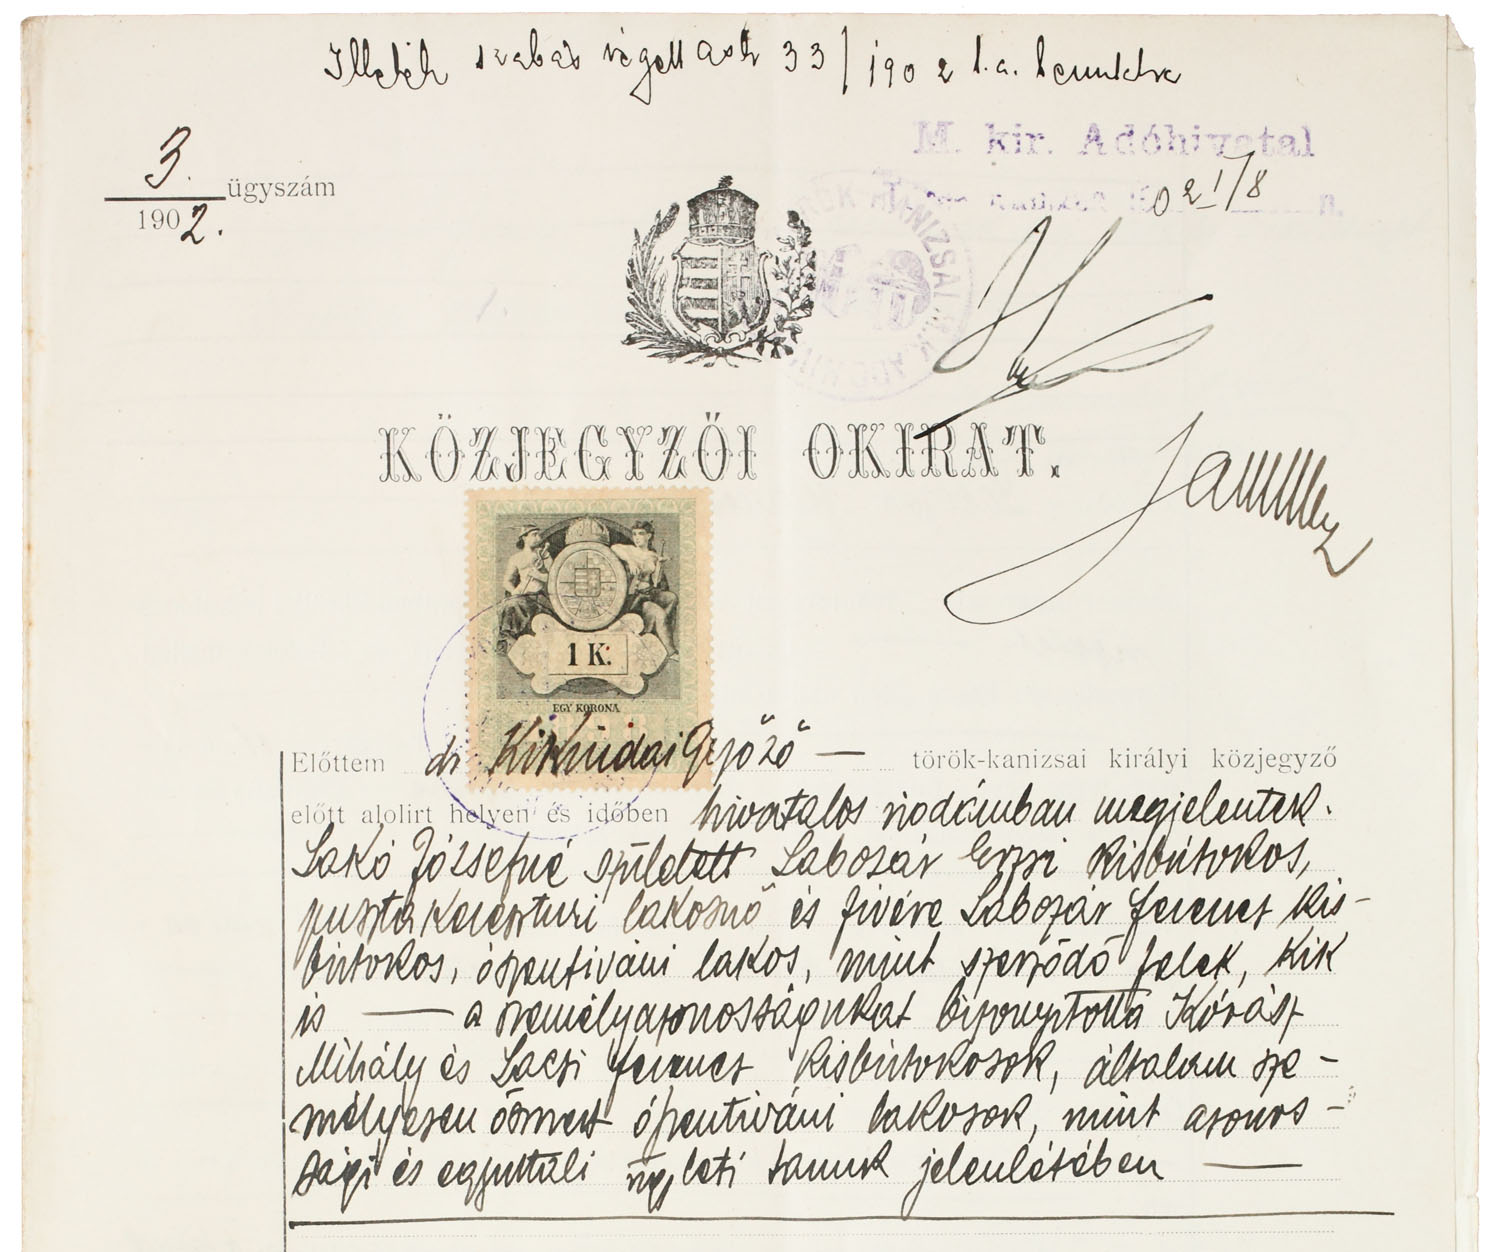 Illeték szabás végett 33/1902 b.a.
M. kir. Adóhivatal
3. ügyszám
1902.
902 1/8 n.
KÖZJEGYZŐI OKIRAT.
1 K.
EGY KORONA
Előttem dr Győző — török-kanizsai királyi közjegyző
előtt alolirt helyen és időben hivatalos irodámban megjelentek.
Lakó Józsefné született Laboszár Erzsi kisbirtokos,
puszta kereszturi lakosnő és fivére Laboszár Ferencz kis-
birtokos, ószentiváni lakos, mint szerződő felek, kik
is — a személyazonosságukat bizonyitotta Kórász
Mihály és Laczi Ferencz kisbirtokosok, általam sze-
mélyesen ösmert ószentiváni lakosok, mint azonos-
sági és egyuttali ügyleti tanuk jelenlétében —